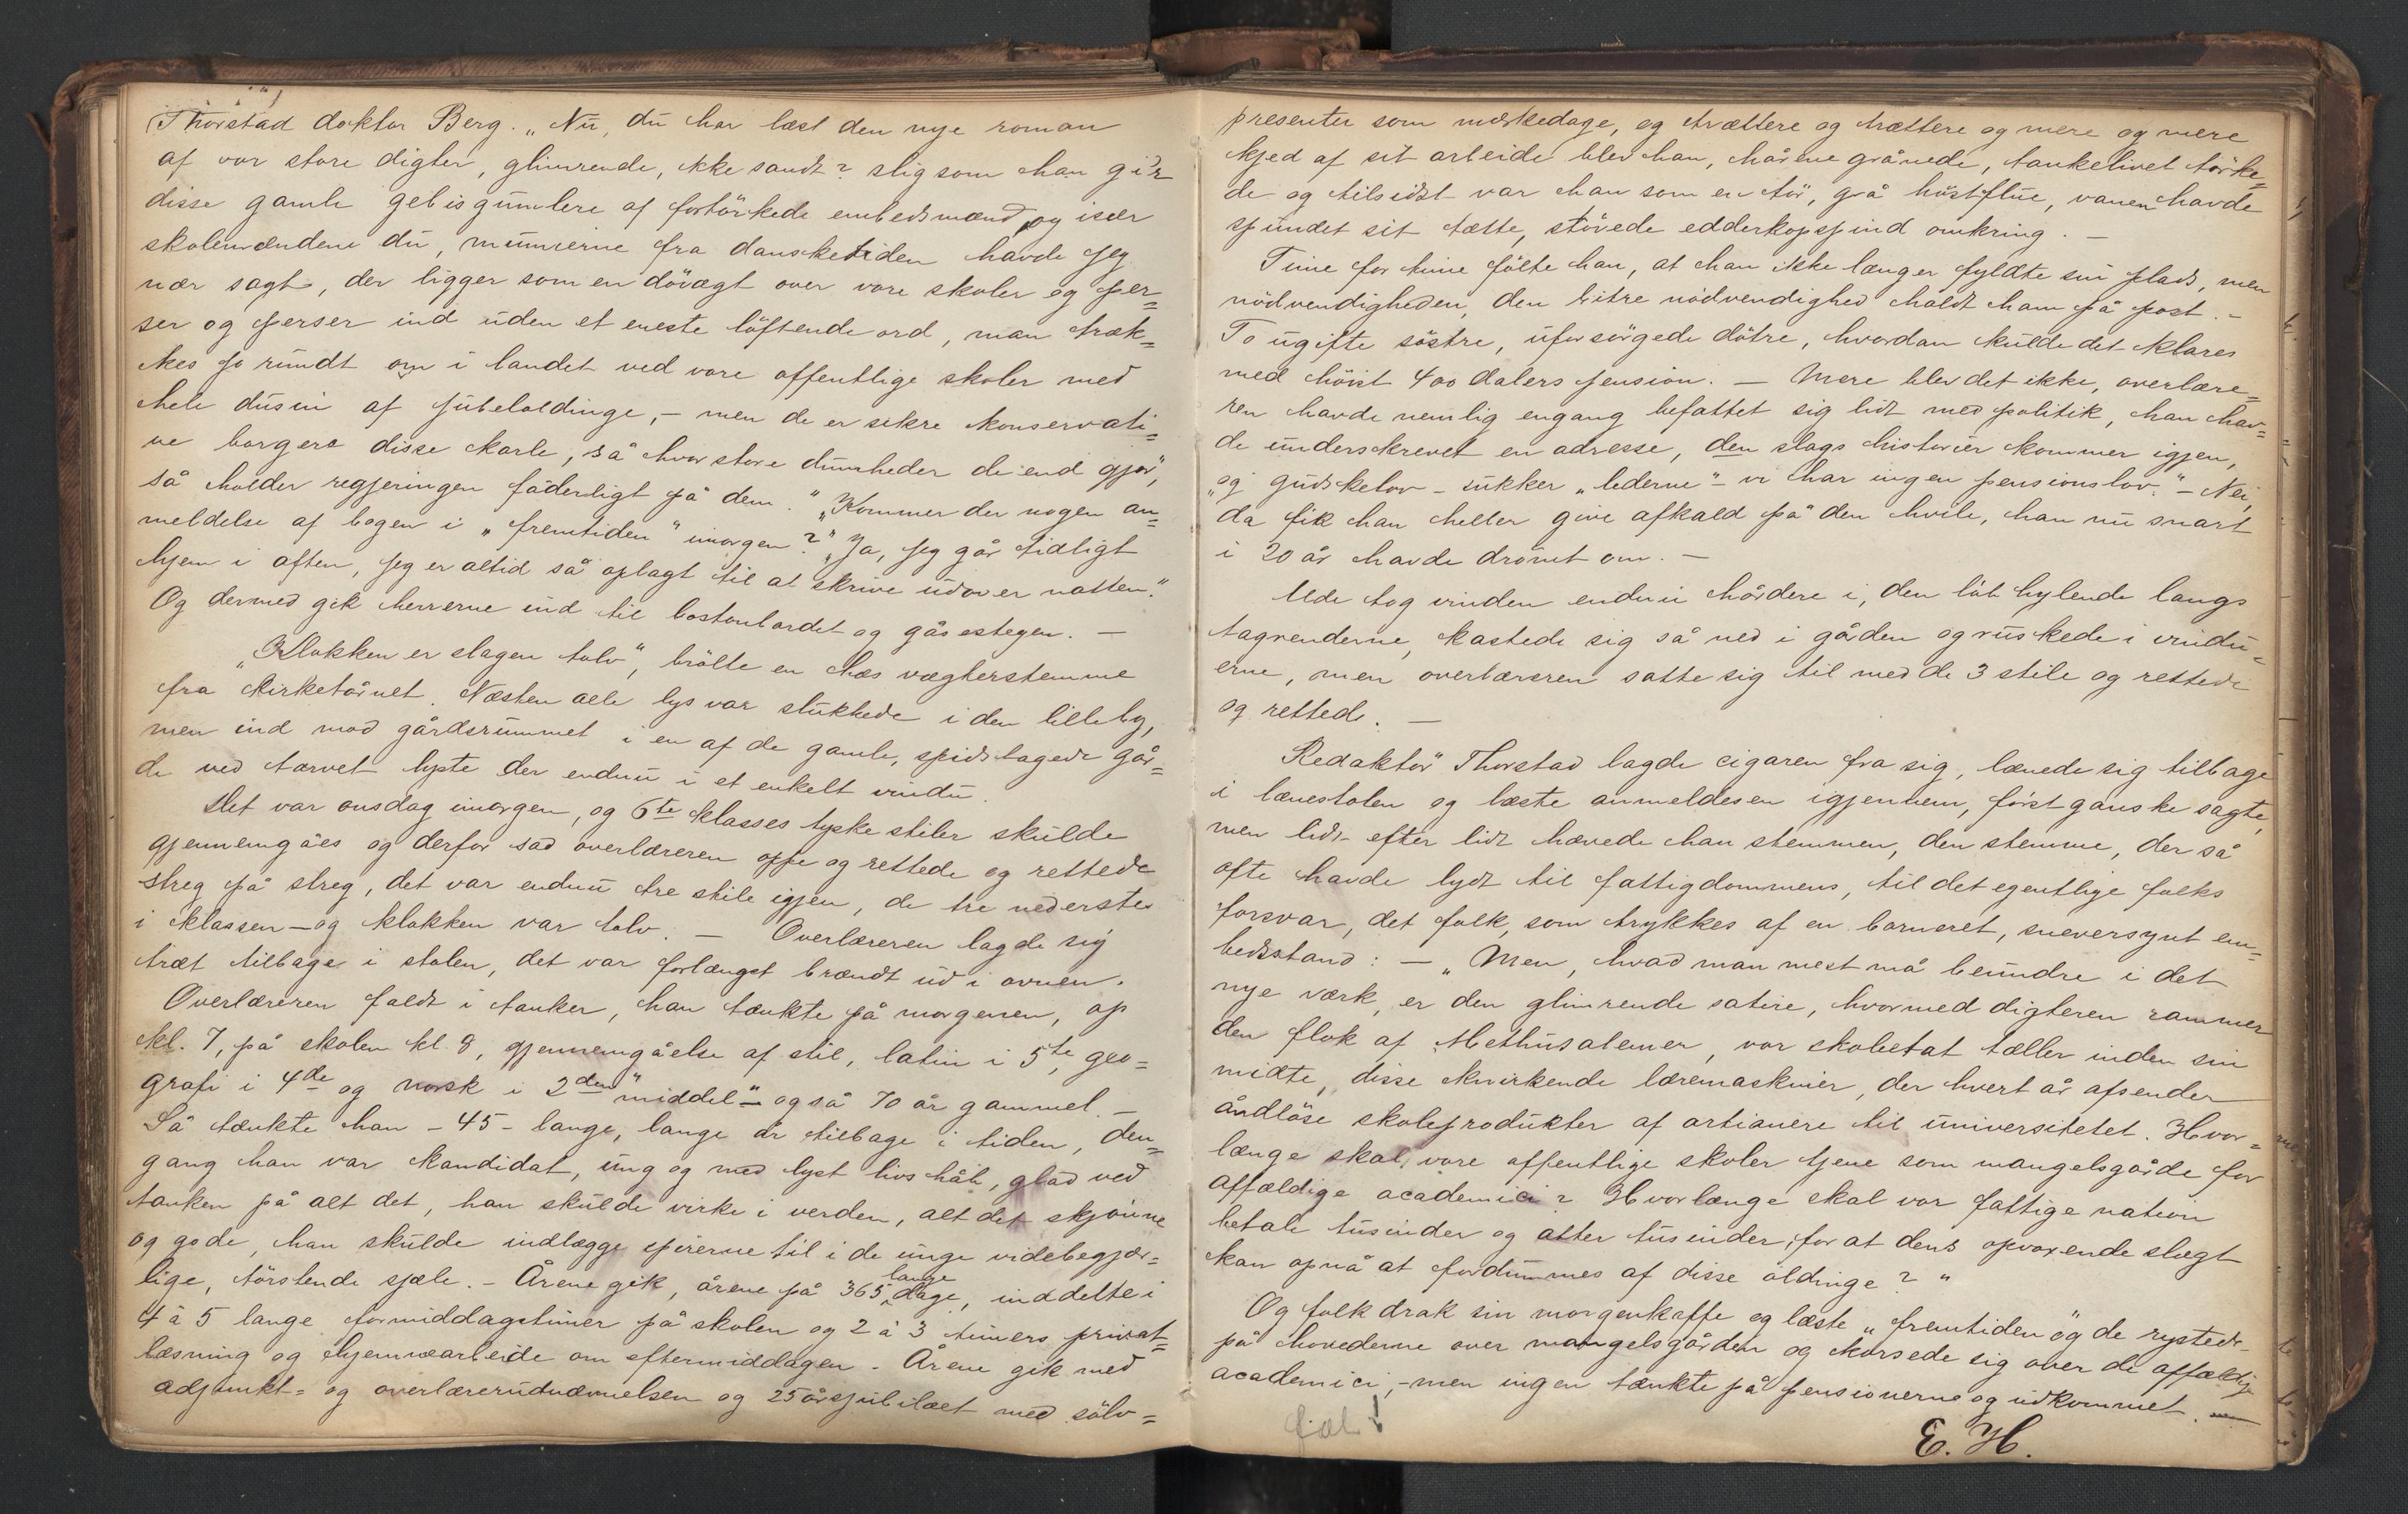 Thorstad doktor Berg. „Nu, du har læst den nye roman
af vor store digter, glimrende, ikke sandt? slig som han gi'r
disse gamle gebisgumlere af fortörkede embedsmænd, og især
skolemændene du, mumierne fra dansketiden havde jeg
nær sagt, der ligger som en dövægt over vore skoler og per=
ser og perser ind uden et eneste löftende ord, man træk=
kes jo rundt om i landet ved vore offentlige skoler med
hele dusin af jubeloldinge, – men de er sikre konservati=
ve borgere disse karle, så hvor store dumheder de end gjør",
så holder regjeringen faderligt på dem." „Kommer der nogen an=
meldelse af bogen i „fremtiden" imorgen?" „Ja, jeg går tidligt
hjem i aften, jeg er altid så oplagt til at skrive udover natten."
Og dermed gik herrerne ind til bostonbordet og gåsestegen. –
„Klokken er slagen tolv", brölte en hæs vægterstemme
fra kirketårnet. Næsten alle lys var slukkede i den lille by,
men ind mod gårdsrummet i en af de gamle, spidstagede går=
de ved torvet lyste der endnu i et enkelt vindu.
Det var onsdag imorgen, og 6te klasses tyske stiler skulde
gjennemgåes og derfor sad overlæreren oppe og rettede og rettede
streg på streg, det var endnu tre stile igjen, de tre nederste
i klassen – og klokken var tolv. – Overlæreren lagde sig
træt tilbage i stolen, det var forlængst brændt ud i ovnen.
Overlæreren faldt i tanker, han tænkte på morgenen, op
kl. 7, på skolen kl. 8, gjennemgåelse af stil, latin i 5te, geo=
grafi i 4de og norsk i 2den "middel" – også 70 år gammel. –
Så tænkte han – 45 – lange, lange år tilbage i tiden, den=
gang han var kandidat, ung og med lyst livshåb, glad ved
tanken på alt det, han skulde virke i verden, alt det skjønne
og gode, han skulde indlægge spirerne til i de unge videbegjær=
lige, törstende sjæle. – Årene gik, årene på 365 lange dage, inddelte i
4 à 5 lange formiddagstimer på skolen og 2 à 3 timers privat=
læsning og hjemmearbeide om eftermiddagen. Årene gik med
adjunkt= og overlærerudnævnelsen og 25årsjubilæet med sölv=
presenter som mærkedage, og trættere og trættere og mere og mere
kjed af sit arbeide blev han, hårene grånede, tankelivet törke=
de og tilsidst var han som en tör, grå höstflue, vanen havde
spundet sit tætte, stövede edderkopspind omkring. –
Time for time fölte han, at han ikke længer fyldte sin plads, men
nödvendigheden, den bitre nödvendighed holdt ham på post. –
To ugifte söstre, uforsörgede dötre, hvordan skulde det klares
med höist 400 dalers pension. – Mere blev det ikke, overlære=
ren havde nemlig engang befattet sig lidt med politik, han hav=
de underskrevet en adresse, den slags historier kommer igjen,
„og gudskelov – sukker „lederne" – vi har ingen pensionslov." – Nei,
da fik han heller give afkald på den hvile, han nu snart
i 20 år havde drömt om. –
Ude tog vinden endnu hårdere i, den löb hylende langs
tagrenderne, kastede sig så ned i gården og ruskede i vindu=
erne, men overlæreren satte sig til med de 3 stile og rettede
og rettede. –
Redaktör Thorstad lagde cigaren fra sig, lænede sig tilbage
i lænestolen og læste anmeldesen igjennem, först ganske sagte,
men lidt efter lidt hævede han stemmen, den stemme, der så
ofte havde lydt til fattigdommens, til det egentlige folks
forsvar, det folk, som trykkes af en borneret, sneversynt em=
bedsstand: – „Men, hvad man mest må beundre i det
nye værk, er den glimrende satire, hvormed digteren rammer
den flok af Methusalemer, vor skoletat tæller inden sin
midte, disse knirkende læremaskiner, der hvert år afsender
åndlöse skoleprodukter af artianere til universitetet. Hvor=
længe skal vore offentlige skoler tjene som mangelsgårde for
affældige academici? Hvorlænge skal vor fattige nation
betale tusinder og atter tusinder, for at dens opvoxende slægt
kan opnå at fordummes af disse oldinge?"
Og folk drak sin morgenkaffe og læste „fremtiden" og de rystede
på hovederne over mangelsgården og korsede sig over de affældige
academici, – men ingen tænkte på pensionerne og udkommet. –
E. H.